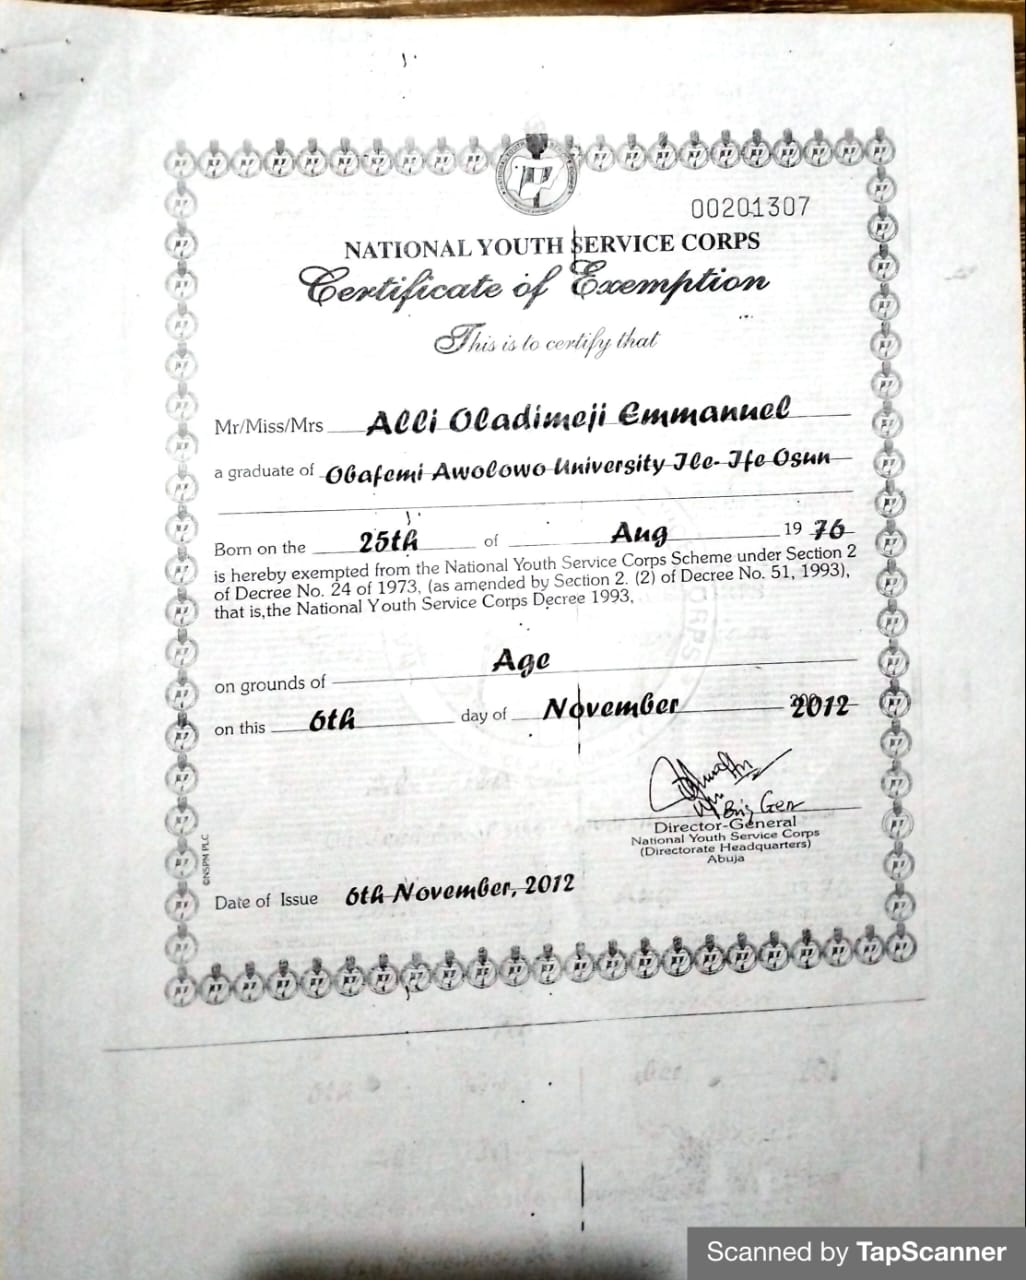 00201307
NATIONAL YOUTH SERVICE CORPS
Certificate of Exemption
This is to certify that
Mr/Miss/Mrs Alli Oladimeji Emmanuel
a graduate of Obafemi Awolowo University Ile-Ife Osun
Born on the 25th of Aug 1976
is hereby exempted from the National Youth Service Corps Scheme under Section 2
of Decree No. 24 of 1973, (as amended by Section 2. (2) of Decree No. 51, 1993),
that is, the National Youth Service Corps Decree 1993,
on grounds of Age
on this 6th day of November 2012
Brig Gen
Director-General
National Youth Service Corps
(Directorate Headquarters)
Abuja
©NSPM PLC
Date of Issue 6th November, 2012
Scanned by TapScanner